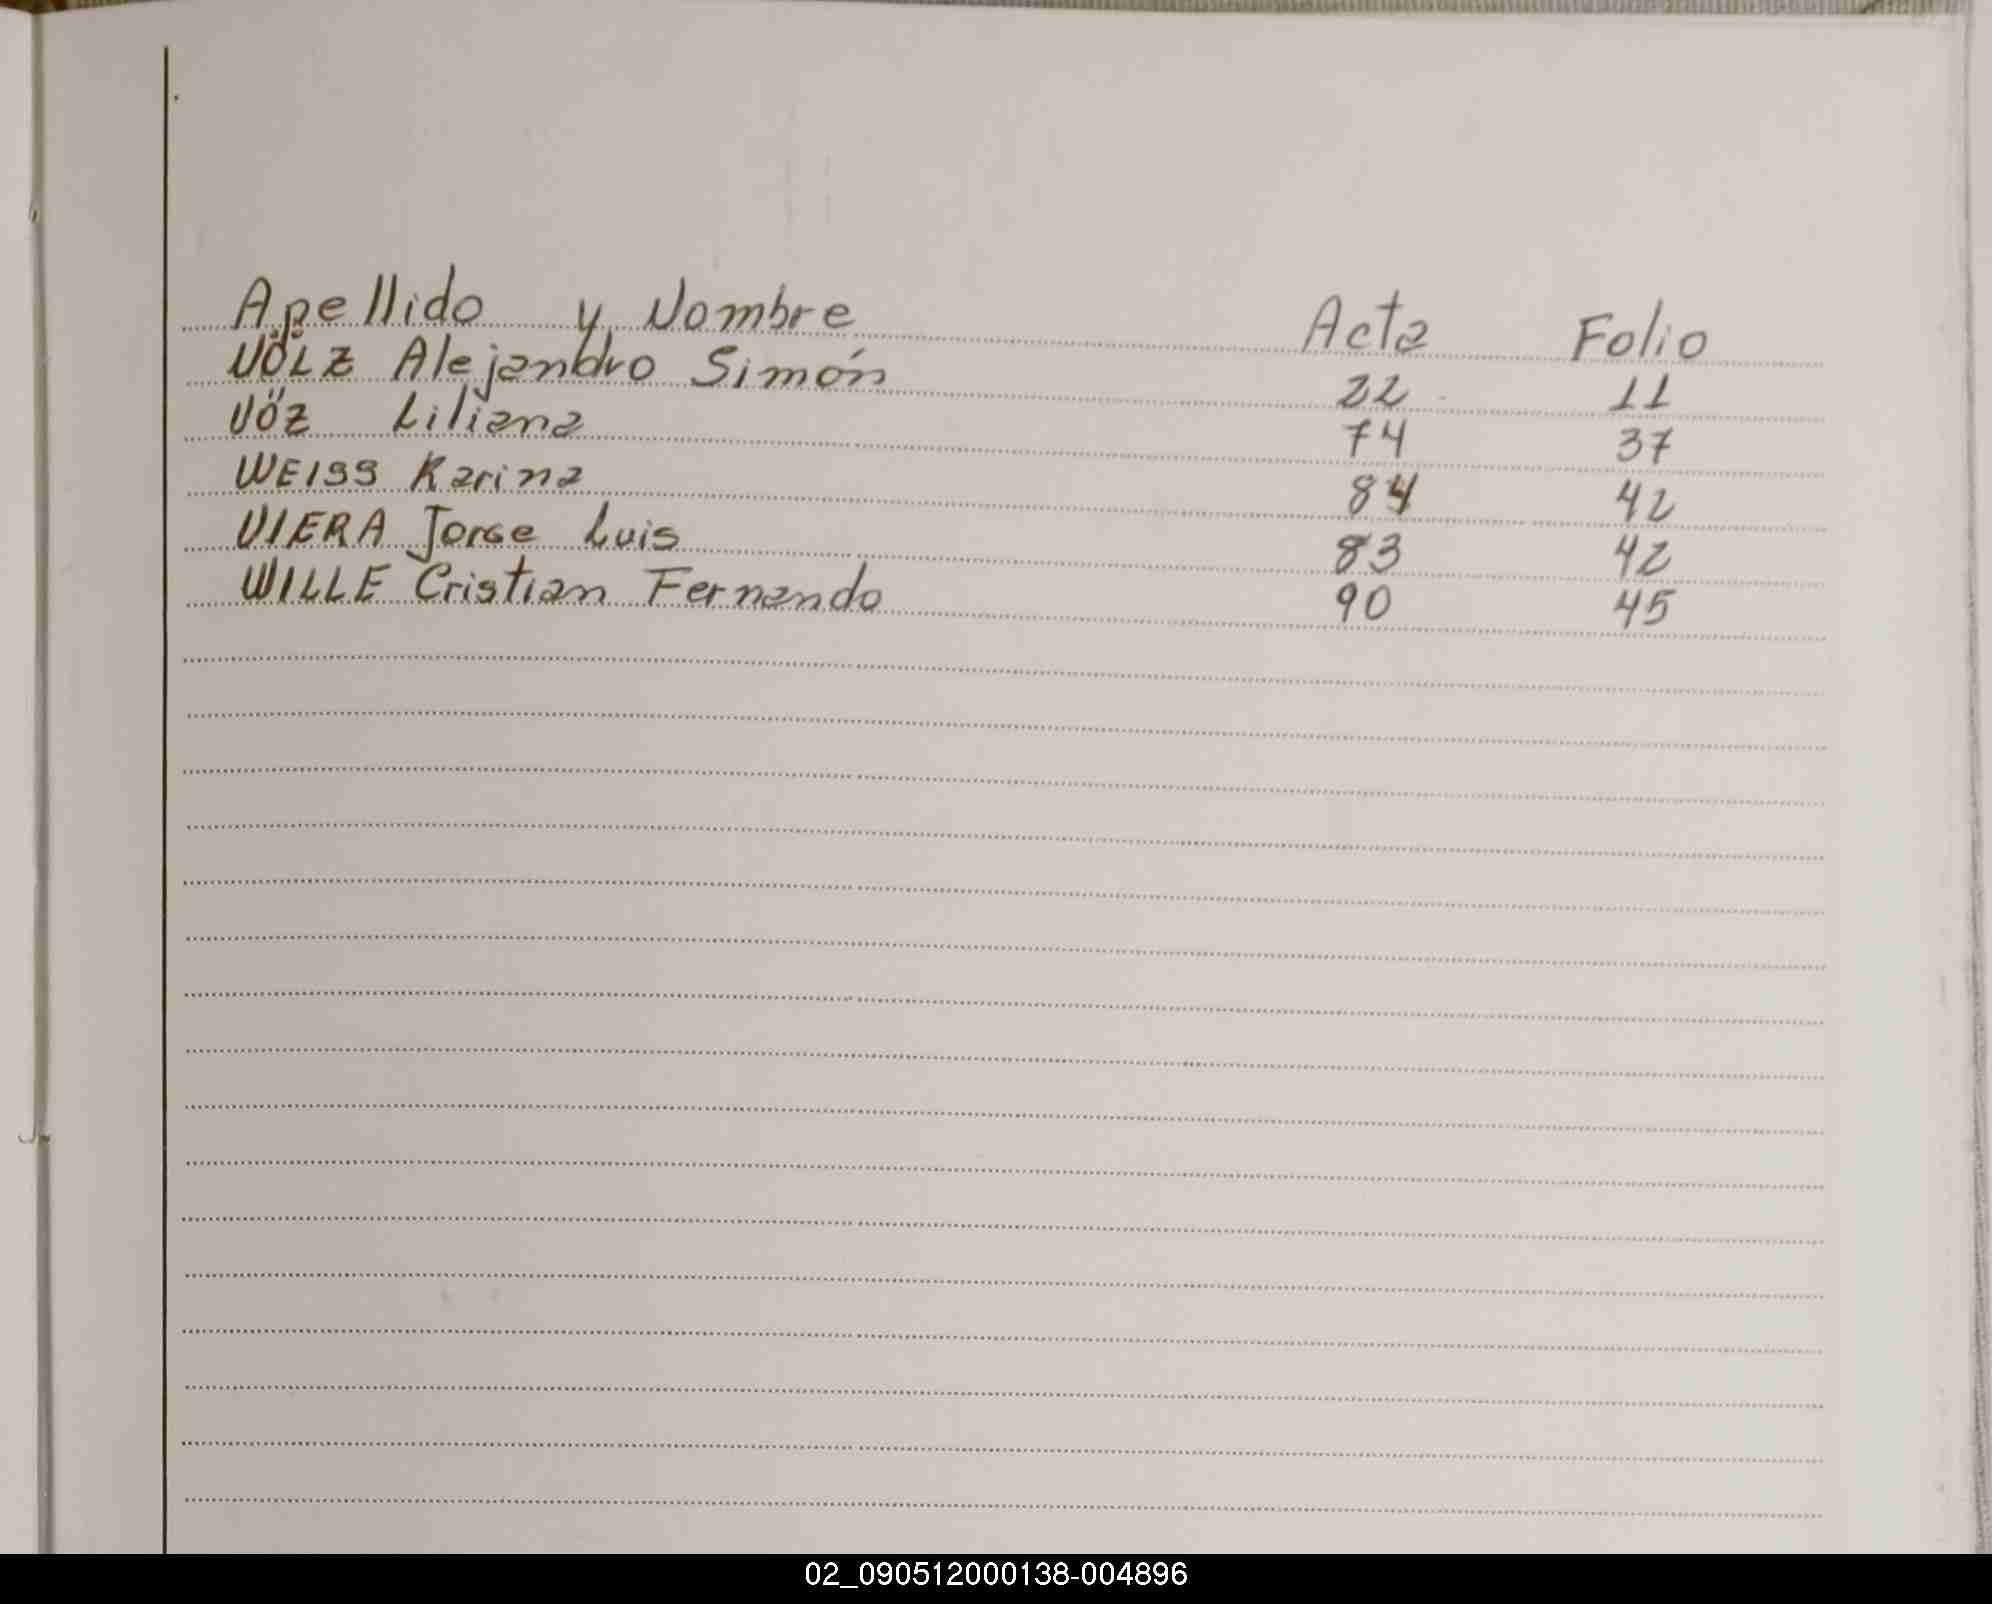 Apellido y Nombre Acta Folio
VÖLZ Alejandro Simón 22 11
VÖZ Liliana 74 37
WEISS Karina 84 42
VIERA Jorge Luis 83 42
WILLE Cristian Fernando 90 45
02_090512000138-004896